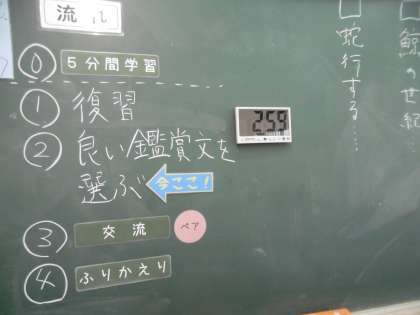 流れ
⓪ 5分間学習
① 復習
② 良い鑑賞文を
選ぶ 今ここ!
③ 交流 ペア
④ ふりかえり
2:59
□蛇行する…
□鯨の世紀…